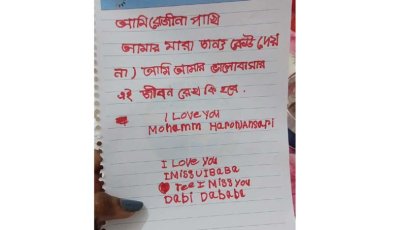 আমি রোজীনা পাখি
আমার মারা জন্য কেউ দেয়
না) আমি আমার ভালোবাসার
এই জীবন রেখে কি হবে.
I Love you
Mohamm HaronAnsari
I Love you
I MISS U I BaBa
Tee I Miss you
DaBi DaBaBa